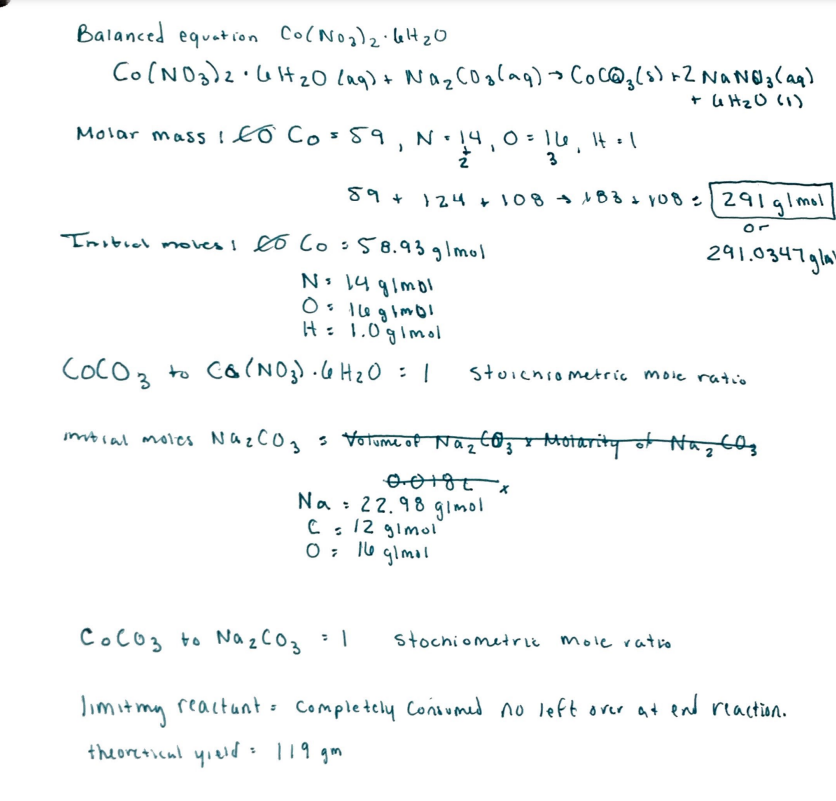 Balanced equation Co(NO3)2·6H2O
Co(NO3)2·6H2O (aq) + Na2CO3(aq) → CoCO3(s) + 2 NaNO3(aq)
+ 6H2O (l)
Molar mass : Co Co = 59, N = 14, O = 16, H = 1
2 3
59 + 124 + 108 → 183 + 108 = 291 g/mol
or
291.0347 g/m
Initial moles : Co Co = 58.93 g/mol
N = 14 g/mol
O = 16 g/mol
H = 1.0 g/mol
CoCO3 to Co(NO3)·6H2O = 1 Stoichiometric mole ratio
initial moles Na2CO3 = Volume of Na2CO3 x Molarity of Na2CO3
0.018L x
Na = 22.98 g/mol
C = 12 g/mol
O = 16 g/mol
CoCO3 to Na2CO3 = 1 Stochiometric mole ratio
limiting reactant = Completely Consumed no left over at end reaction.
theoretical yield = 119 gm